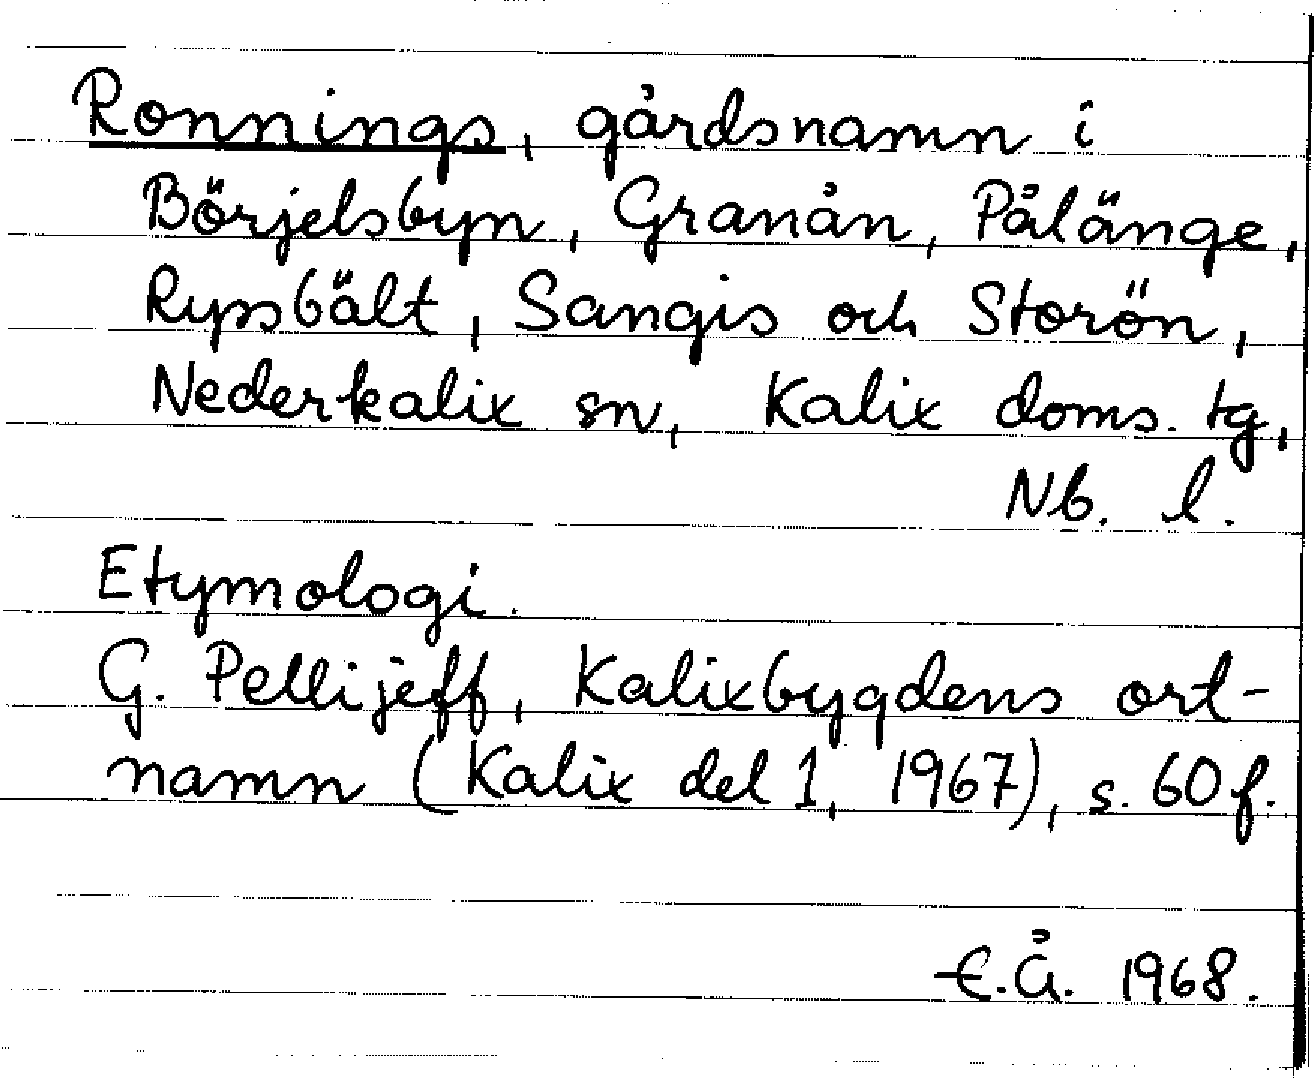 Ronnings, gårdsnamn i
Börjelsbyn, Granån, Pålänge,
Ryssbält, Sangis och Storön,
Nederkalix sn, Kalix doms. tg,
Nb. l.
Etymologi.
G. Pellijeff, Kalixbygdens ort-
namn (Kalix del 1, 1967), s. 60 f.
E.Å. 1968.